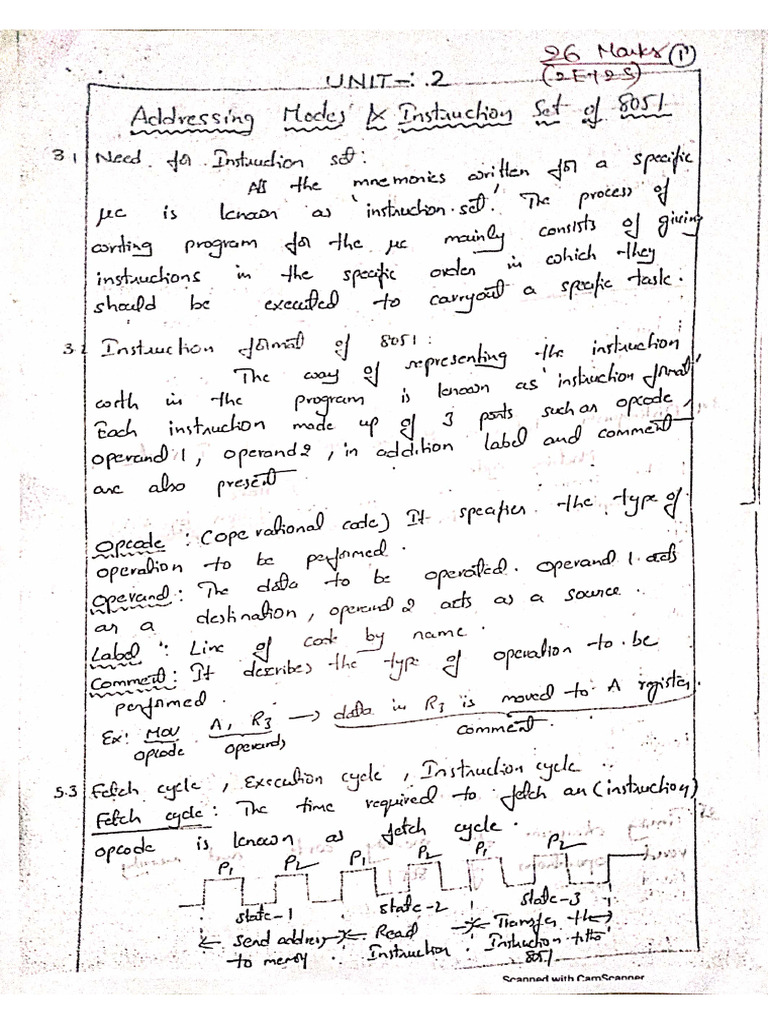 26 Marks 1
(2E+2S)
UNIT-: 2
Addressing Modes & Instruction Set of 8051
3.1 Need for Instruction set:
All the mnemonics written for a specific
μc is known as 'instruction set'. The process of
writing program for the μc mainly consists of giving
instructions in the specific order in which they
should be executed to carryout a specific task.
3.2 Instruction format of 8051:
The way of representing the instruction
worth in the program is known as 'instruction format'
Each instruction made up of 3 parts such as opcode,
operand 1, operand 2, in addition label and comment
are also present
Opcode: (operational code) It specifies the type of
operation to be performed.
Operand: The data to be operated. Operand 1 acts
as a destination, operand 2 acts as a source.
Label: Line of code by name.
Comment: It describes the type of operation to be
performed.
Ex: MOV A, R3 → data in R3 is moved to A register.
opcode operands comment.
5.3 Fetch cycle, Execution cycle, Instruction cycle
Fetch cycle: The time required to fetch an (instruction)
opcode is known as fetch cycle.
P1 P2 P1 P2 P1 P2
state-1 state-2 state-3
Send address Read Transfer the
to memory Instruction Instruction to the
8051
Scanned with CamScanner